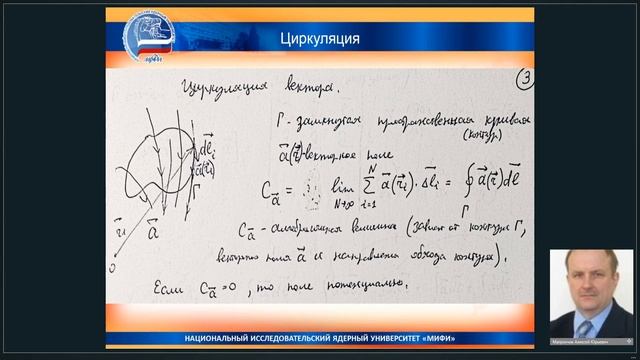 Циркуляция
Циркуляция вектора.
3
Γ - замкнутая пространственная кривая
(контур)
a⃗(r⃗) - векторное поле
C_a⃗ = lim_{N→∞} ∑_{i=1}^{N} a⃗(r⃗_i) · Δl⃗_i = ∮_Γ a⃗(r⃗) dl⃗
dl⃗_i
a⃗(r⃗_i)
Γ
r⃗_i
a⃗
0
C_a⃗ - алгебраическая величина (зависит от контура Γ,
векторного поля a⃗ и направления обхода контура).
Если C_a⃗ = 0, то поле потенциально.
НАЦИОНАЛЬНЫЙ ИССЛЕДОВАТЕЛЬСКИЙ ЯДЕРНЫЙ УНИВЕРСИТЕТ «МИФИ»